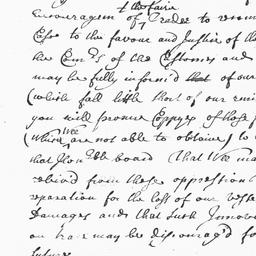 & the faire
Encouragem of Trades to
Else to the favour and Justice of th
the Com:rs of the Customes and
may be fully inform'd that of our
(which fall little short of our
you will procure Coppyes of those
(which Wee are not able to obtaine) to
that Hon:ble board That Wee ma
reliev'd from these oppressions
reparation for the loss of our Vesse
Damages and that such Innova
on hor may be discourag'd fo
future